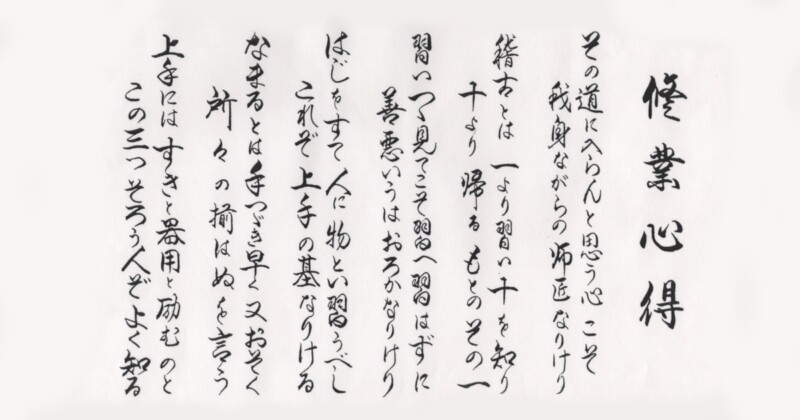 修業心得
その道に入らんと思う心こそ
我身ながらの師匠なりけり
稽古とは一より習い十を知り
十より帰るもとのその一
習いつゝ見てこそ習へ習はずに
善悪いうはおろかなりけり
はじをすて人に物とい習うべし
これぞ上手の基なりける
なまるとは手つゞき早く又おそく
所々の揃はぬを言う
上手にはすきと器用と励むのと
この三つそろう人ぞよく知る